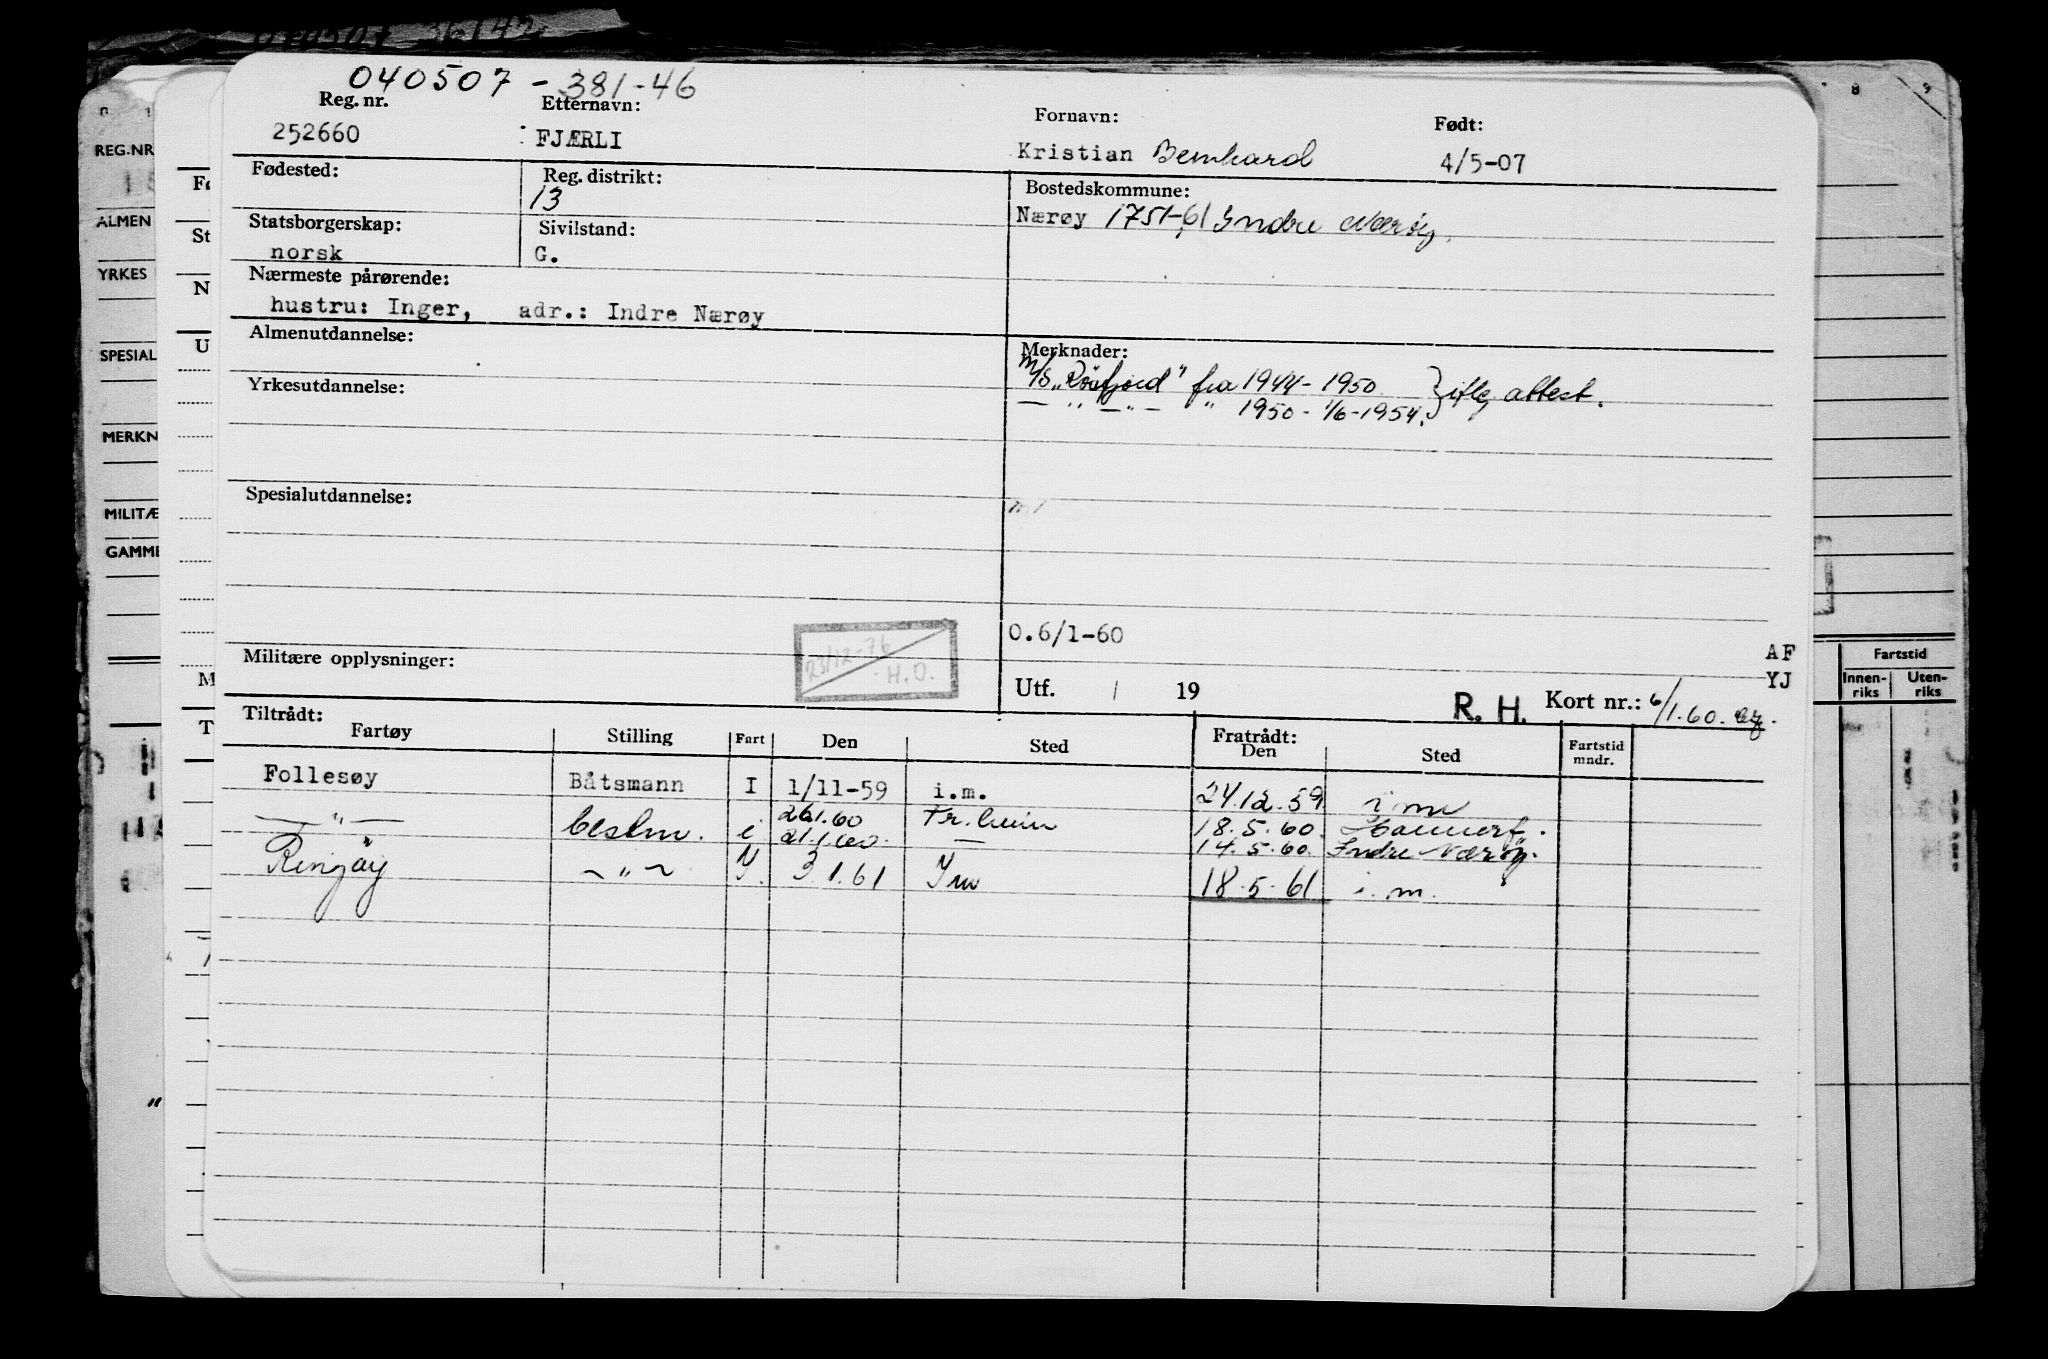 040507 - 381-46
Reg. nr. Etternavn: Fornavn: Født:
252660 FJÆRLI Kristian Bernhard 4/5-07
Fødested: Reg. distrikt: Bostedskommune:
13 Nærøy 1751-61 Indre Nærøy.
Statsborgerskap: Sivilstand:
norsk G.
Nærmeste pårørende:
hustru: Inger, adr.: Indre Nærøy
Almenutdannelse: Merknader:
M/S "Råsfjord" fra 1944-1950 } iflg attest.
Yrkesutdannelse: — " — " — " 1950 - 1/6-1954.
Spesialutdannelse:
0.6/1-60
23/12-76
H.O.
Militære opplysninger:
AF
YJ
Utf. / 19 R. H. Kort nr.: 6/1.60.
Tiltrådt: Fratrådt:
Fartøy Stilling Fart Den Sted Den Sted Fartstid mndr.
Follesøy Båtsmann I 1/11-59 i.m. 24.12.59 i m
— " — i 26.1.60 18.5.60.
21.1.60. — 14.5.60. Indre Nærøy.
Ringøy — " — I. 3.1.61 I m 18.5.61 i. m.
REG.NR
ALMEN
YRKES
SPESIAL
MERKN
MILITÆ
GAMME
Fø
St
N
U
M
T
8 9
Fartstid
Innen-riks Uten-riks